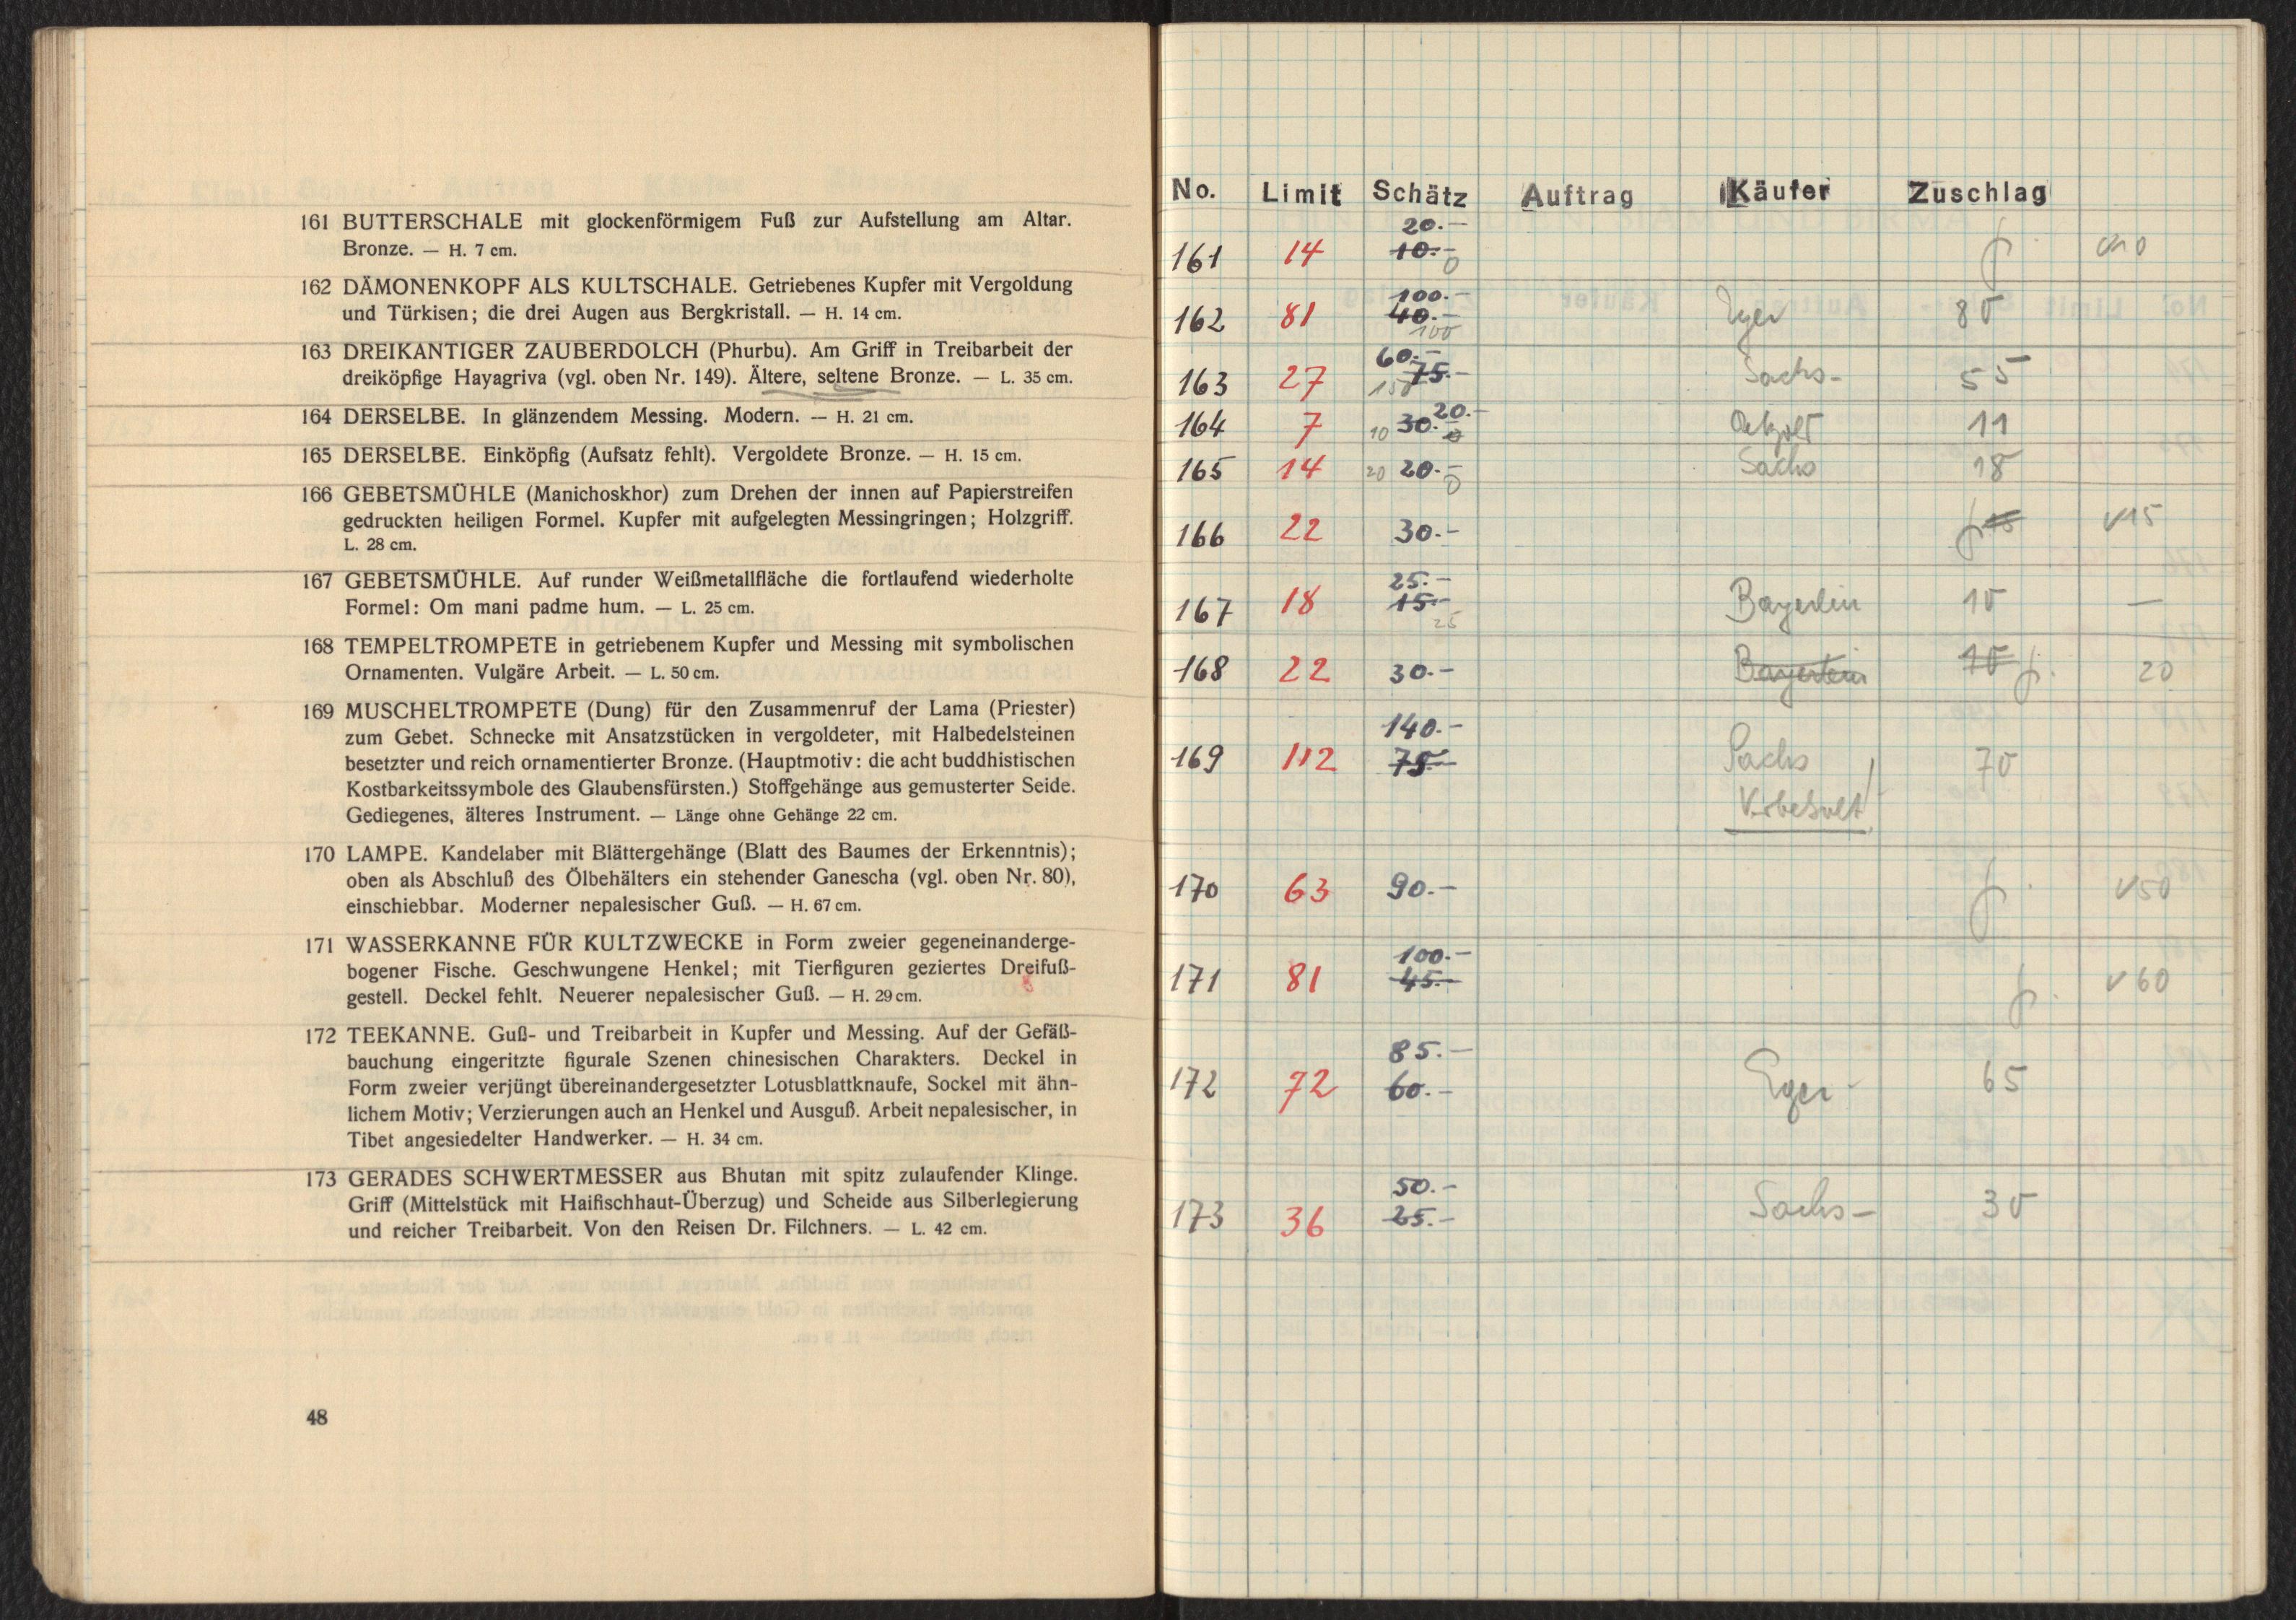 161 BUTTERSCHALE mit glockenförmigem Fuß zur Aufstellung am Altar.
Bronze. — H. 7 cm.
162 DÄMONENKOPF ALS KULTSCHALE. Getriebenes Kupfer mit Vergoldung
und Türkisen; die drei Augen aus Bergkristall. — H. 14 cm.
163 DREIKANTIGER ZAUBERDOLCH (Phurbu). Am Griff in Treibarbeit der
dreiköpfige Hayagriva (vgl. oben Nr. 149). Ältere, seltene Bronze. — L. 35 cm.
164 DERSELBE. In glänzendem Messing. Modern. — H. 21 cm.
165 DERSELBE. Einköpfig (Aufsatz fehlt). Vergoldete Bronze. — H. 15 cm.
166 GEBETSMÜHLE (Manichoskhor) zum Drehen der innen auf Papierstreifen
gedruckten heiligen Formel. Kupfer mit aufgelegten Messingringen; Holzgriff.
L. 28 cm.
167 GEBETSMÜHLE. Auf runder Weißmetallfläche die fortlaufend wiederholte
Formel: Om mani padme hum. — L. 25 cm.
168 TEMPELTROMPETE in getriebenem Kupfer und Messing mit symbolischen
Ornamenten. Vulgäre Arbeit. — L. 50 cm.
169 MUSCHELTROMPETE (Dung) für den Zusammenruf der Lama (Priester)
zum Gebet. Schnecke mit Ansatzstücken in vergoldeter, mit Halbedelsteinen
besetzter und reich ornamentierter Bronze. (Hauptmotiv: die acht buddhistischen
Kostbarkeitssymbole des Glaubensfürsten.) Stoffgehänge aus gemusterter Seide.
Gediegenes, älteres Instrument. — Länge ohne Gehänge 22 cm.
170 LAMPE. Kandelaber mit Blättergehänge (Blatt des Baumes der Erkenntnis);
oben als Abschluß des Ölbehälters ein stehender Ganescha (vgl. oben Nr. 80),
einschiebbar. Moderner nepalesischer Guß. — H. 67 cm.
171 WASSERKANNE FÜR KULTZWECKE in Form zweier gegeneinanderge-
bogener Fische. Geschwungene Henkel; mit Tierfiguren geziertes Dreifuß-
gestell. Deckel fehlt. Neuerer nepalesischer Guß. — H. 29 cm.
172 TEEKANNE. Guß- und Treibarbeit in Kupfer und Messing. Auf der Gefäß-
bauchung eingeritzte figurale Szenen chinesischen Charakters. Deckel in
Form zweier verjüngt übereinandergesetzter Lotusblattknaufe, Sockel mit ähn-
lichem Motiv; Verzierungen auch an Henkel und Ausguß. Arbeit nepalesischer, in
Tibet angesiedelter Handwerker. — H. 34 cm.
173 GERADES SCHWERTMESSER aus Bhutan mit spitz zulaufender Klinge.
Griff (Mittelstück mit Haifischhaut-Überzug) und Scheide aus Silberlegierung
und reicher Treibarbeit. Von den Reisen Dr. Filchners. — L. 42 cm.
48
No. Limit Schätz Auftrag Käufer Zuschlag
20.-
161 14 10.- 10
100.-
162 81 40.- Eger 80
100
60.-
163 27 75.- Sachs- 55
150
20.-
164 7 10 30.- 11
165 14 20 20.- Sachs 18
166 22 30.- 15 V15
25.-
167 18 15.- Bayerlein 10 —
25
168 22 30.- Bayerlein 10 20
140.-
169 112 75.- Sachs 70
170 63 90.- V50
100.-
171 81 45.- V60
85.-
172 72 60.- Eger 65
50.-
173 36 25.- Sachs- 30